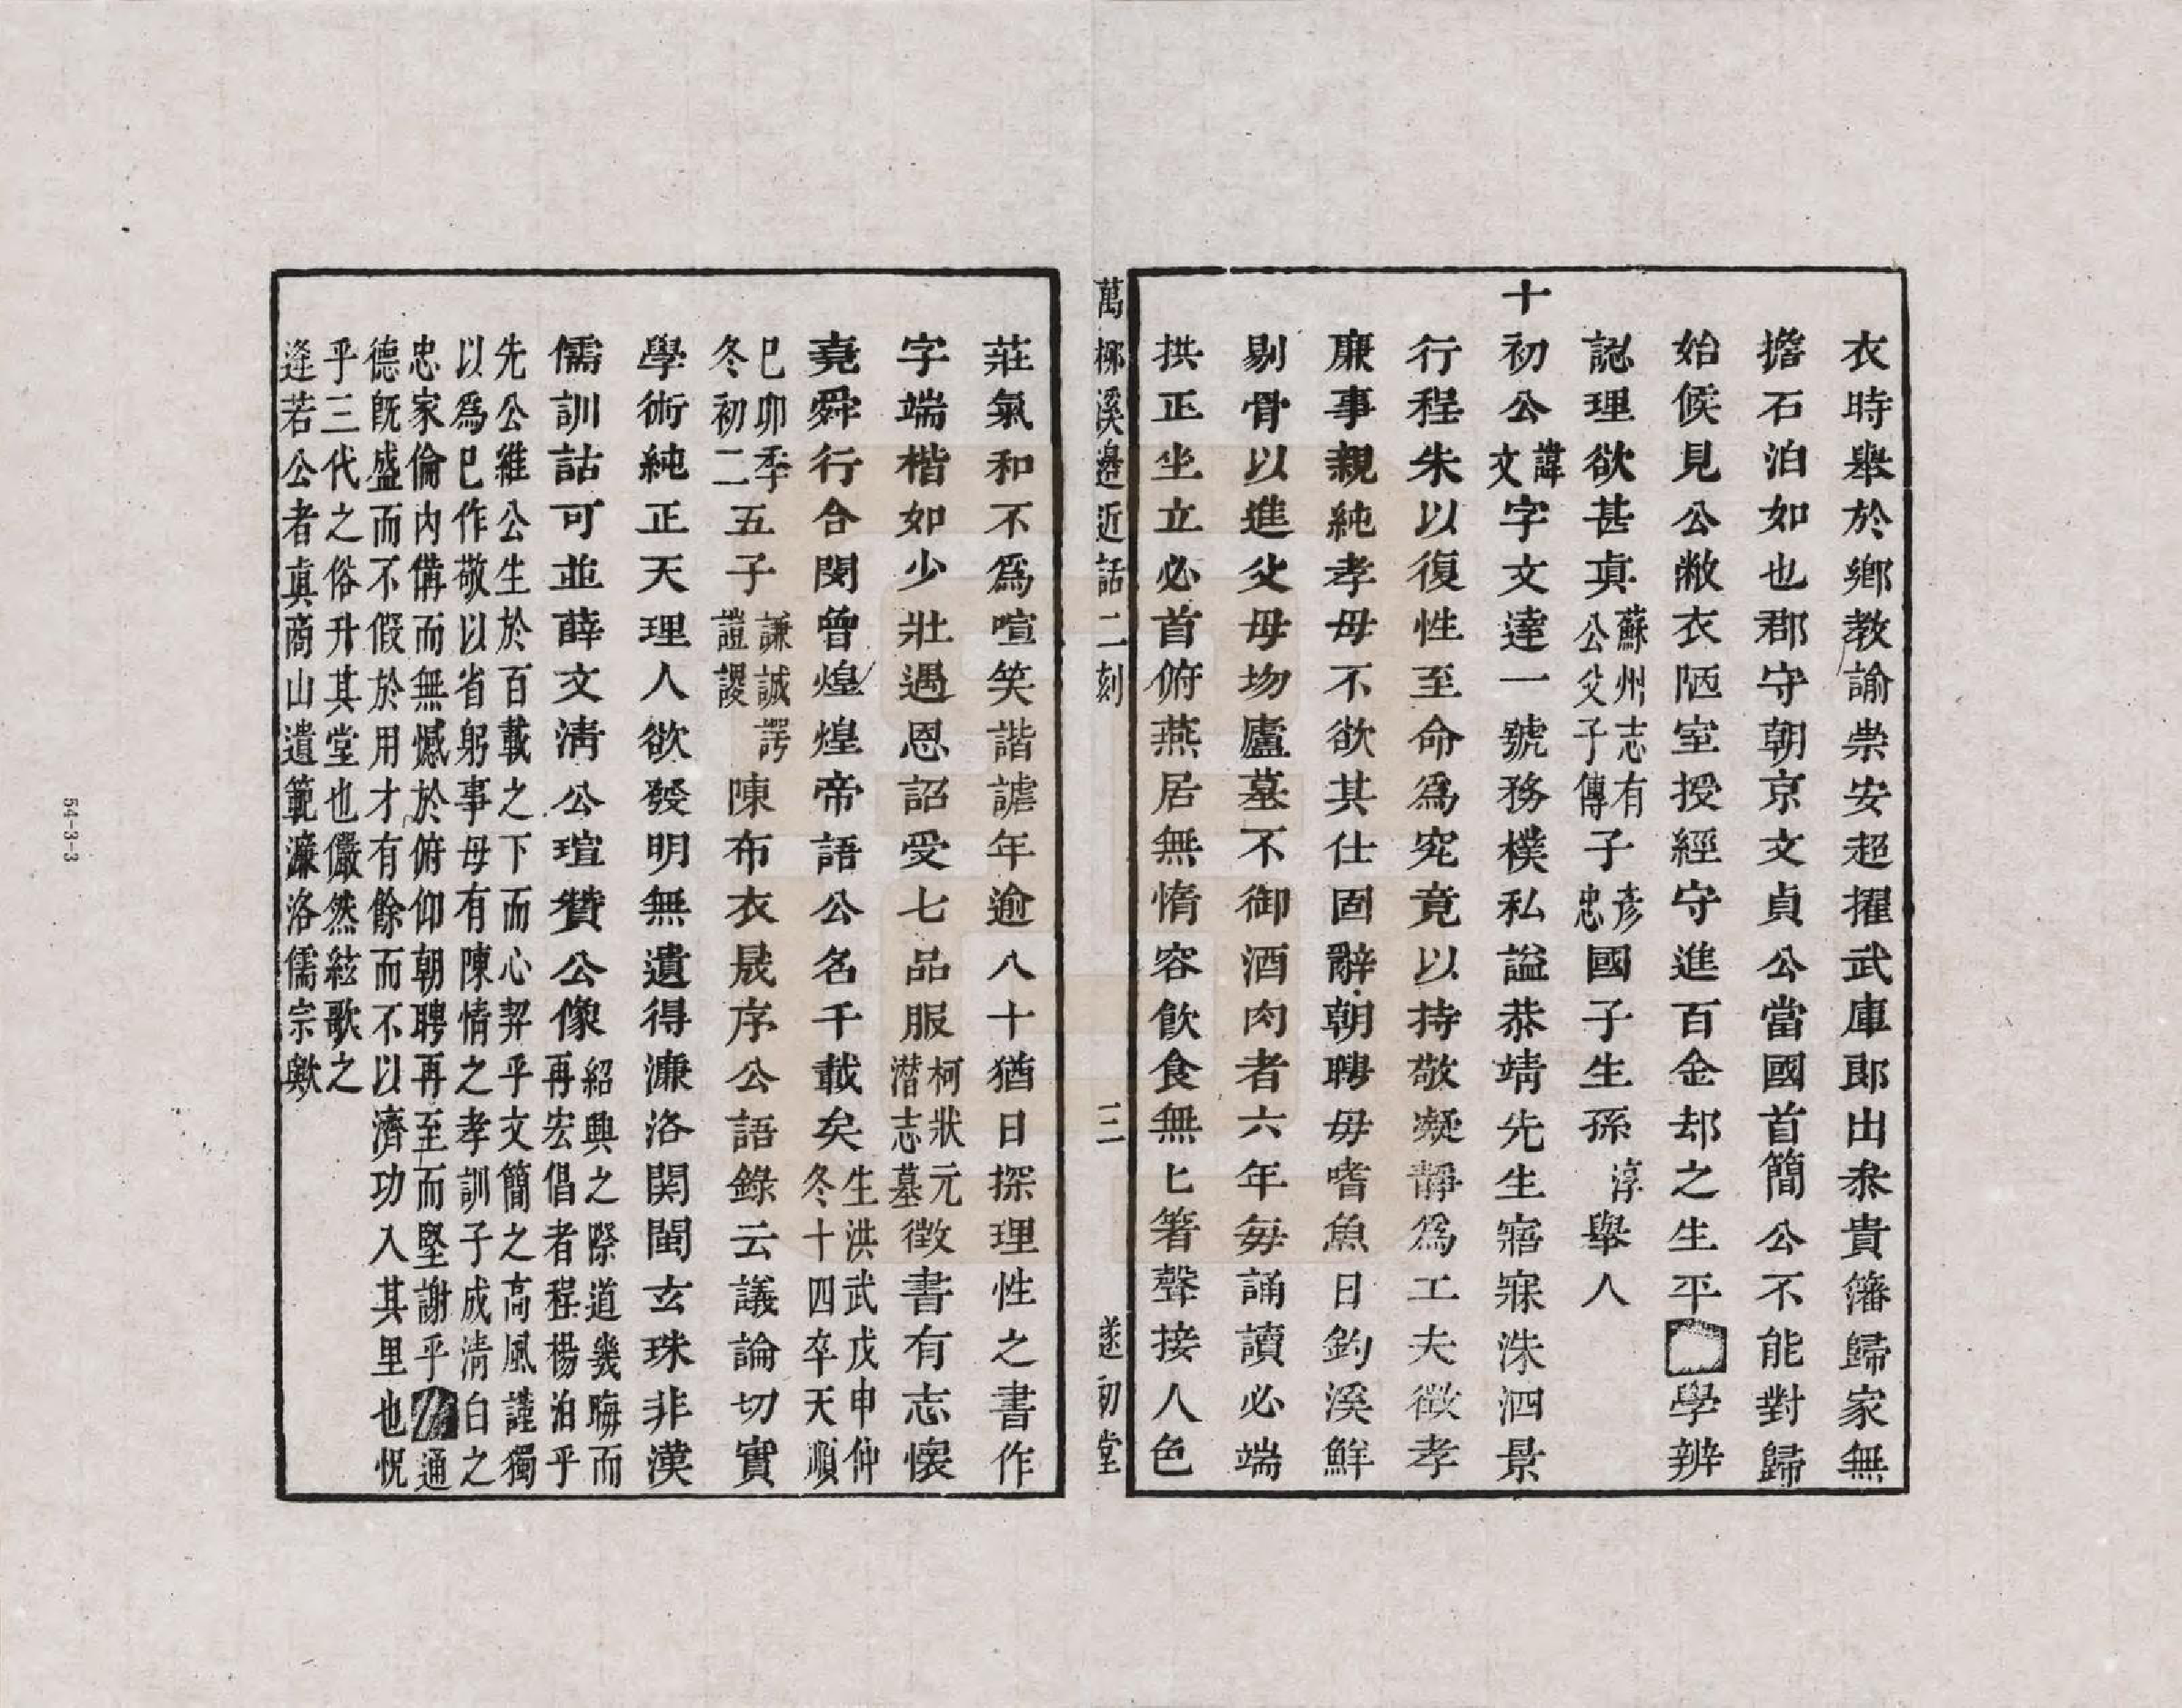 衣時舉於鄉教諭崇安超擢武庫郎出叅貴籓歸家無
擔石泊如也郡守朝京文貞公當國首簡公不能對歸
始候見公敝衣陋室授經守進百金却之生平學辨
認理欲甚真蘇州志有公父子傳子彥忠國子生孫淳舉人
十初公諱文字文達一號務樸私謚恭靖先生寤寐洙泗景
行程朱以復性至命爲究竟以持敬凝靜爲工夫徵孝
廉事親純孝母不欲其仕固辭朝聘毋嗜魚日釣溪鮮
剔骨以進父母歿廬墓不御酒肉者六年每誦讀必端
拱正坐立必首俯燕居無惰容飲食無匕箸聲接人色
萬柳溪邊近話二刻 三 遂初堂
莊氣和不爲喧笑諧謔年逾八十猶日探理性之書作
字端楷如少壯遇恩詔受七品服柯狀元潛志墓徵書有志懷
堯舜行合閔曾煌煌帝語公名千載矣生洪武戊申仲冬十四卒天順
巳卯季冬初二五子謙誠諤諠謖陳布衣晟序公語錄云議論切實
學術純正天理人欲發明無遺得濂洛関閩玄珠非漢
儒訓詁可並薛文清公瑄贊公像紹興之際道幾晦而再宏倡者程楊泊乎
先公維公生於百載之下而心契乎文簡之高風謹獨
以爲巳作敬以省躬事母有陳情之孝訓子成清白之
忠家倫內備而無憾於俯仰朝聘再至而堅謝乎通
德既盛而不假於用才有餘而不以濟功入其里也怳
乎三代之俗升其堂也儼然絃歌之
逢若公者真商山遺範濂洛儒宗歟
54-3-3